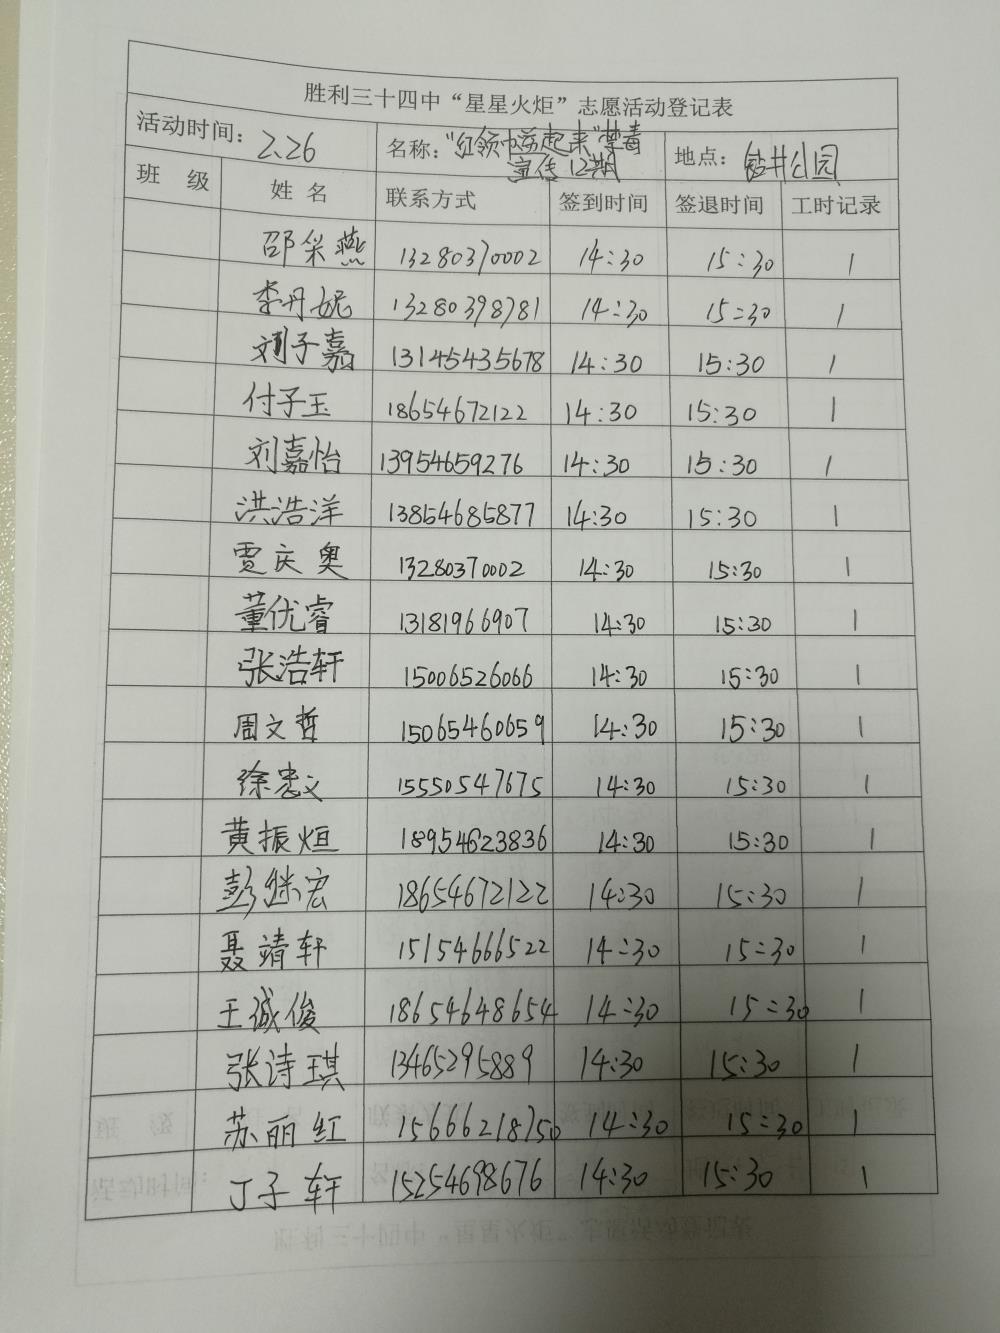 胜利三十四中“星星火炬”志愿活动登记表
活动时间：2.26 名称：“红领巾动起来”禁毒宣传12期 地点：钻井公园
班级 姓名 联系方式 签到时间 签退时间 工时记录
邵采燕 13280370002 14:30 15:30 1
李丹妮 13280398781 14:30 15:30 1
刘子嘉 13145435678 14:30 15:30 1
付子玉 18654672122 14:30 15:30 1
刘嘉怡 13954659276 14:30 15:30 1
洪浩洋 13854685877 14:30 15:30 1
贾庆奥 13280370002 14:30 15:30 1
董优睿 13181966907 14:30 15:30 1
张浩轩 15006526066 14:30 15:30 1
周文哲 15065460659 14:30 15:30 1
徐忠义 15550547675 14:30 15:30 1
黄振烜 18954623836 14:30 15:30 1
彭继宏 18654672122 14:30 15:30 1
聂靖轩 15154666522 14:30 15:30 1
王诚俊 18654648654 14:30 15:30 1
张诗琪 13465295889 14:30 15:30 1
苏丽红 15666218750 14:30 15:30 1
丁子轩 15254698676 14:30 15:30 1